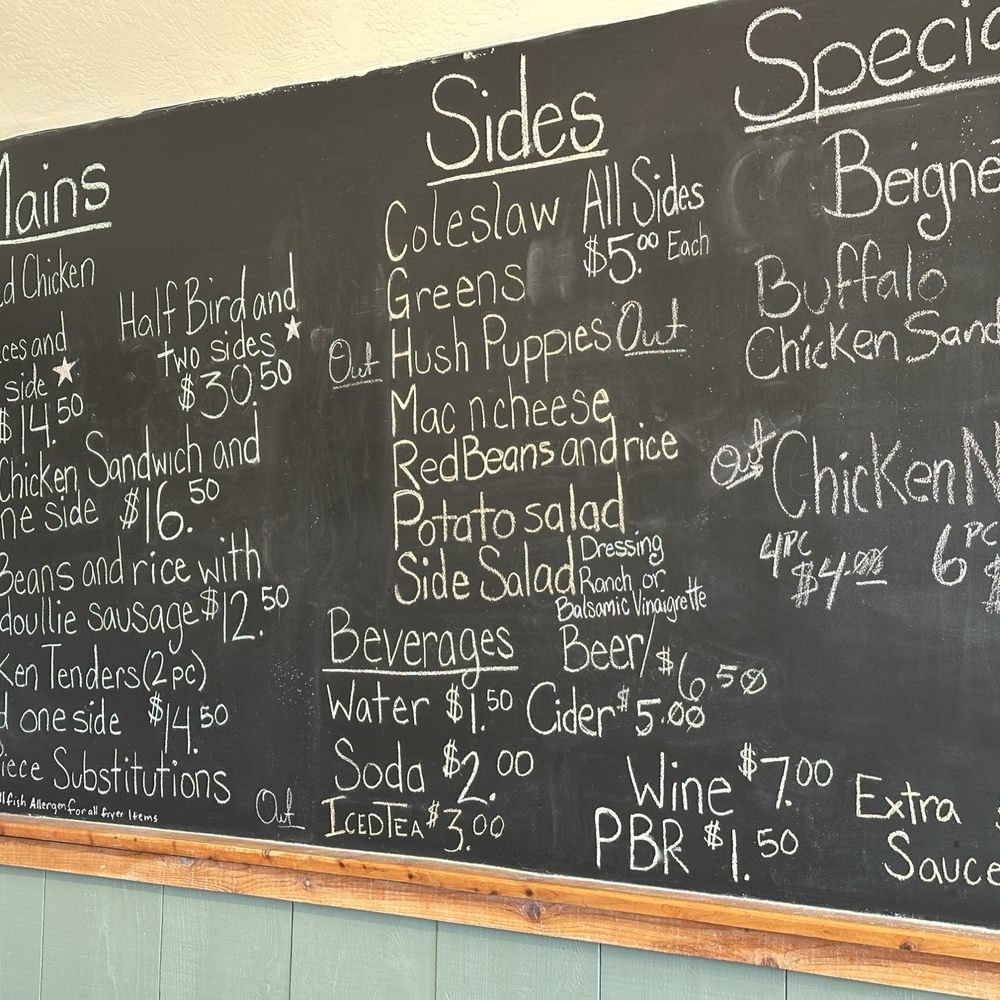 Mains
Chicken
and
side
$14.50
Half Bird and
two sides
$30.50
Chicken Sandwich and
side $16.50
Beans and rice with
sausage $12.50
Tenders (2pc)
one side $14.50
Substitutions
Allergen for all fryer Items
Out
Sides
Coleslaw
All Sides
$5.00 Each
Greens
Out Hush Puppies Out
Mac n cheese
Red Beans and rice
Potato salad
Side Salad
Dressing
Ranch or
Balsamic Vinaigrette
Beverages
Water $1.50
Soda $2.00
Iced Tea $3.00
Beer/ $6.50
Cider $5.00
Wine $7.00
PBR $1.50
Specia
Beigne
Buffalo
Chicken Sand
Out Chicken N
4PC
$4.00
6PC
$
Extra
Sauce